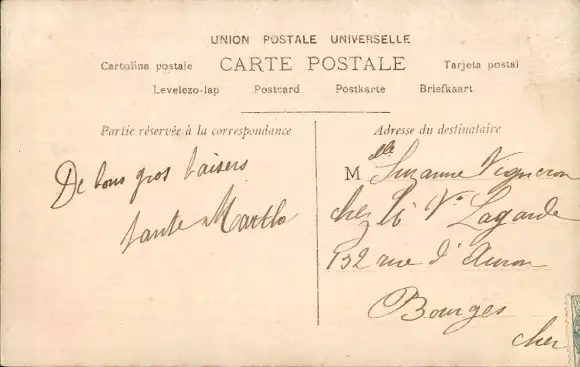 UNION POSTALE UNIVERSELLE
Cartolina postale CARTE POSTALE Tarjeta postal
Levelezo-lap Postcard Postkarte Briefkaart
Partie réservée à la correspondance
De bons gros baisers
tante Marthe
Adresse du destinataire
Melle Suzanne Vigneron
chez Vve Lagarde
132 rue d'Auron
Bourges
Cher